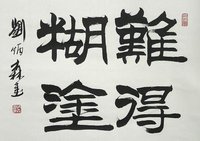 難得
糊塗
劉炳森書